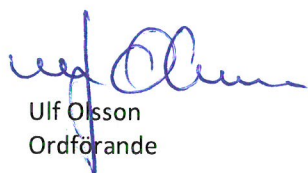 Ulf Olsson
Ordförande